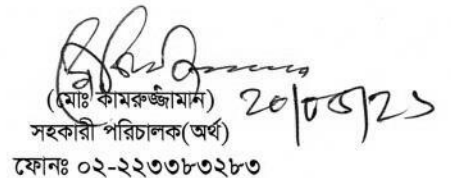 (মোঃ কামরুজ্জামান) ২০/০৫/২১
সহকারী পরিচালক(অর্থ)
ফোনঃ ০২-২২৩৩৮৩২৮৩